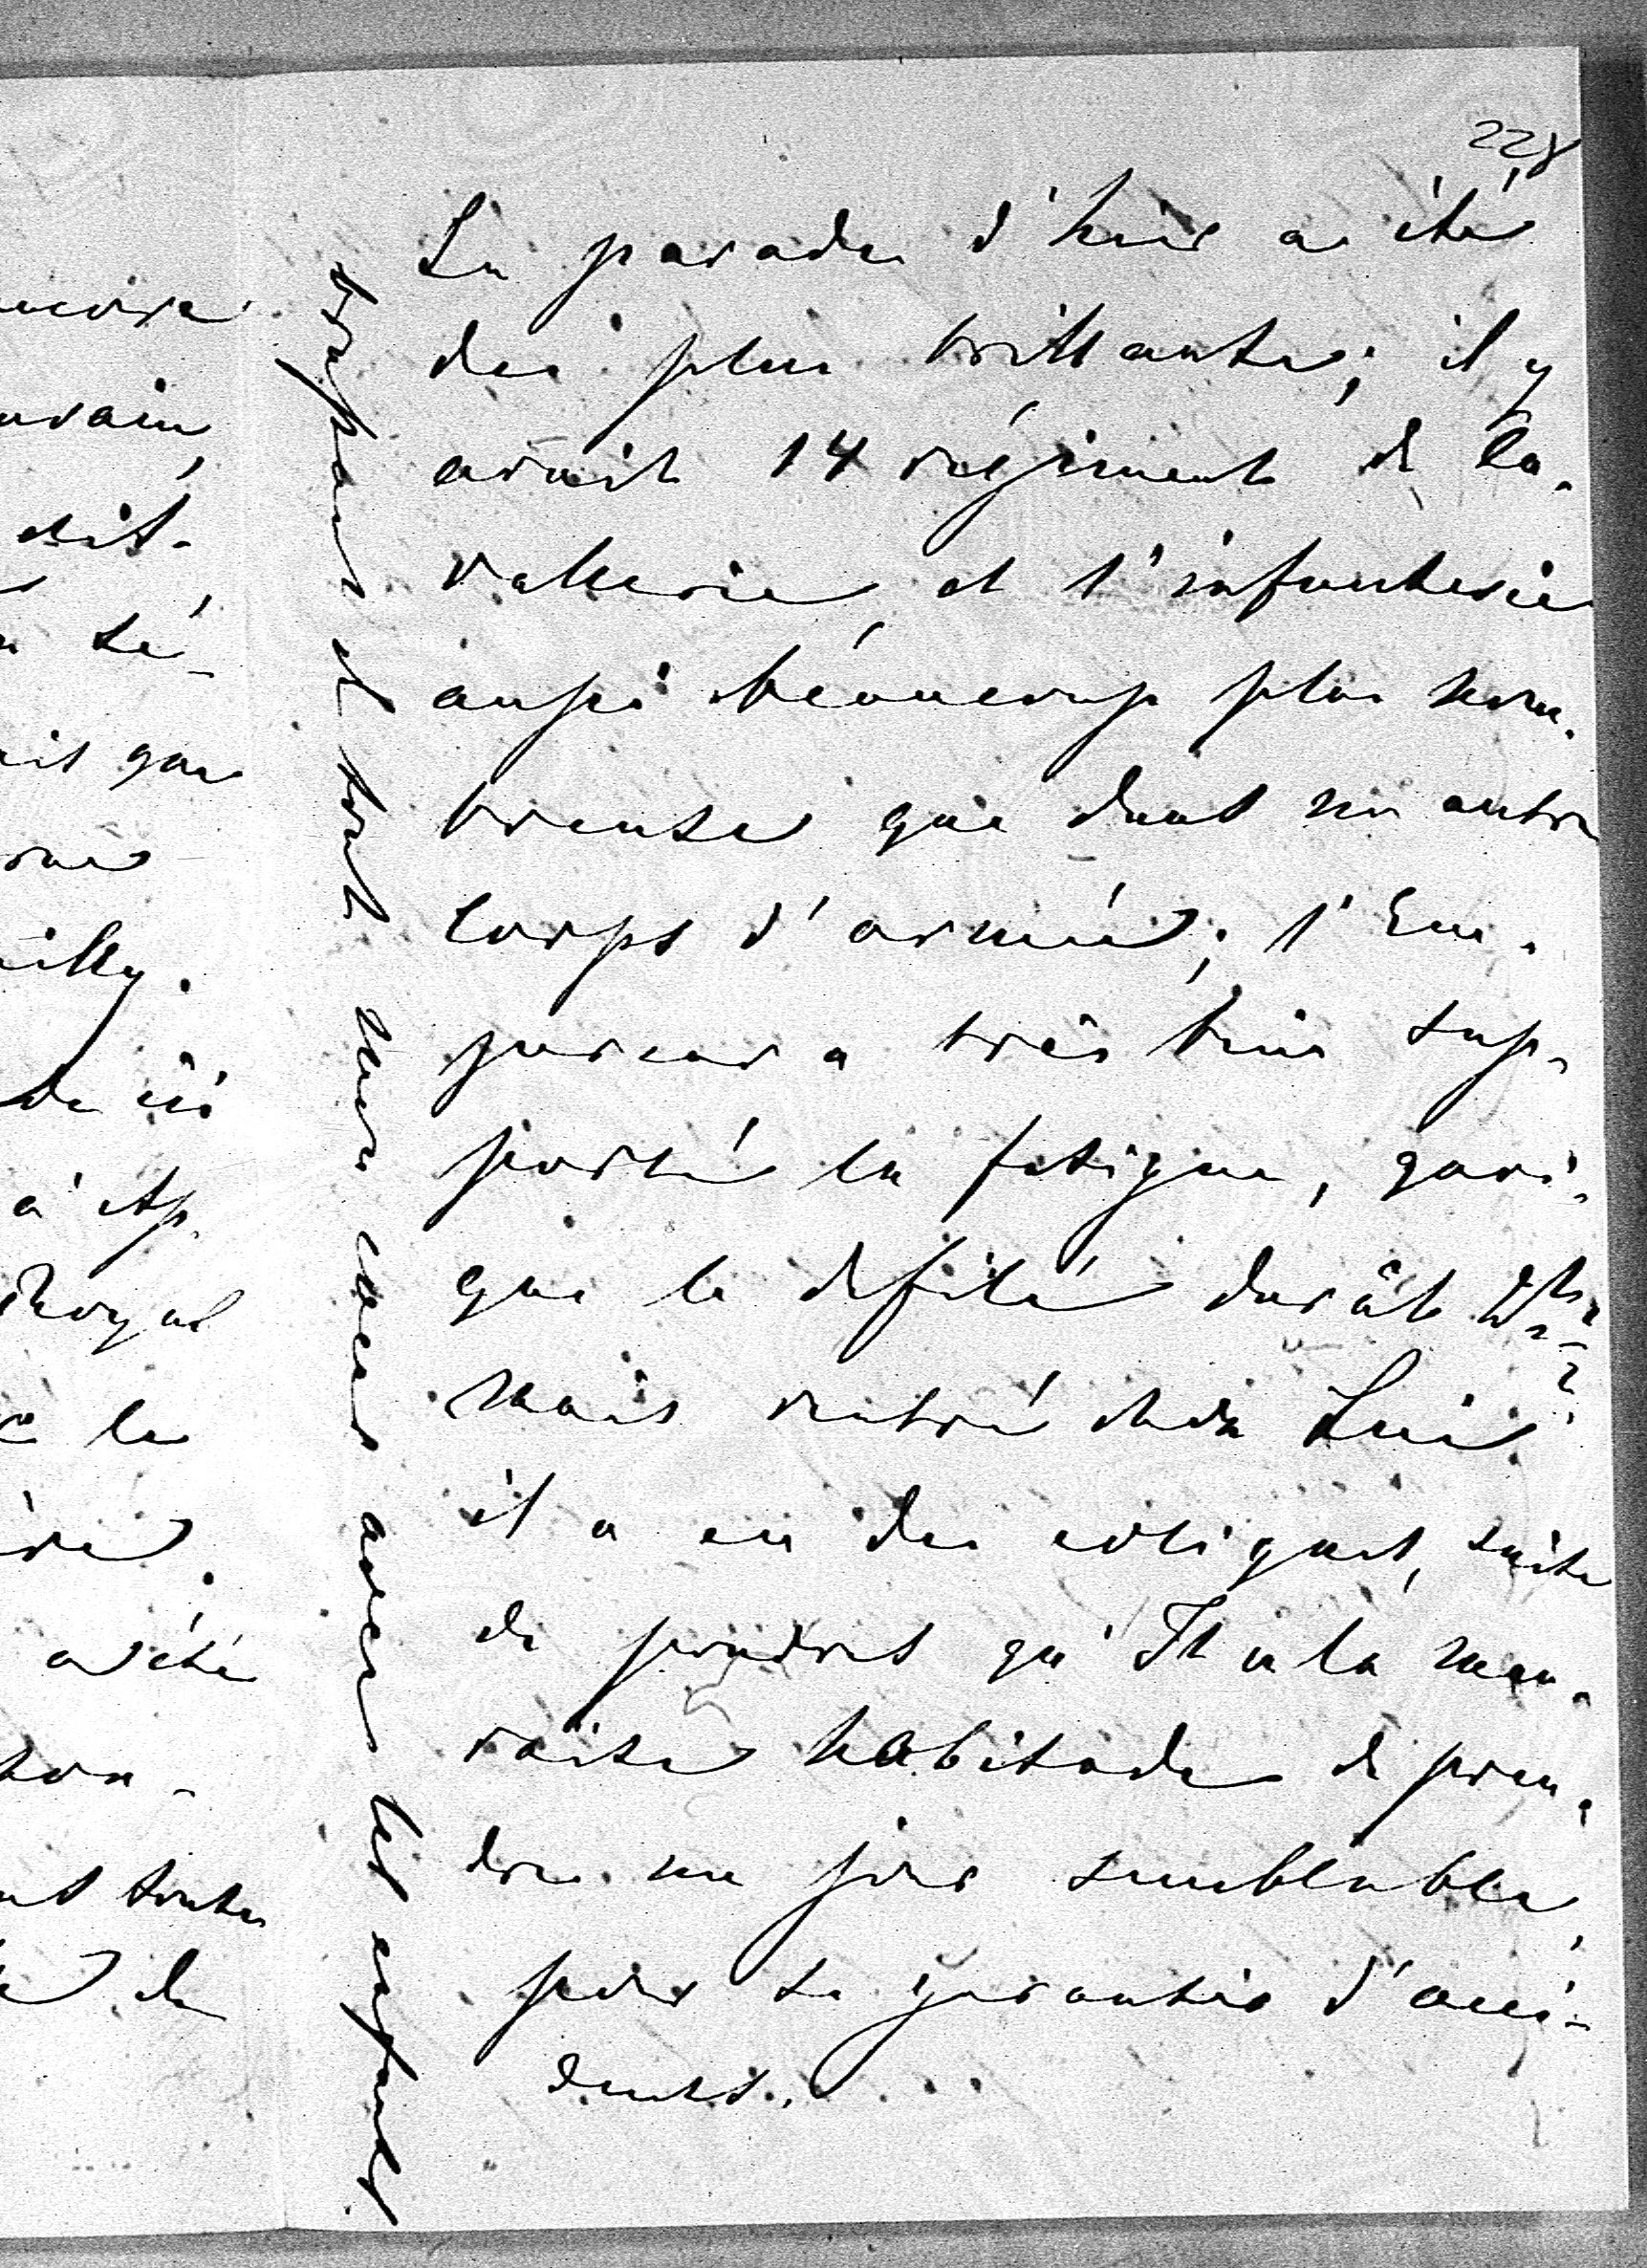 228
La parade d'hier a été
des plus brillantes; il y
avait 14 régiments de Ca-
vallerie et l'infanterie
aussi beaucoup plus nom-
breuse que dans un autre
Corps d'armée; l'Em-
pereur a très bien sup-
porté la fatigue, quoi-
que le defilé durât
mais rentré chez Lui
il a eu des coliques, suite
de poudres qu'Il a la mau-
vaise habitude de pren-
dre un jour semblable,
pour se garantir d'acci-
dents.
et avec les enfants
encore
dit-
sé-
que
ici
à
Royal
le
a été
toutes
de